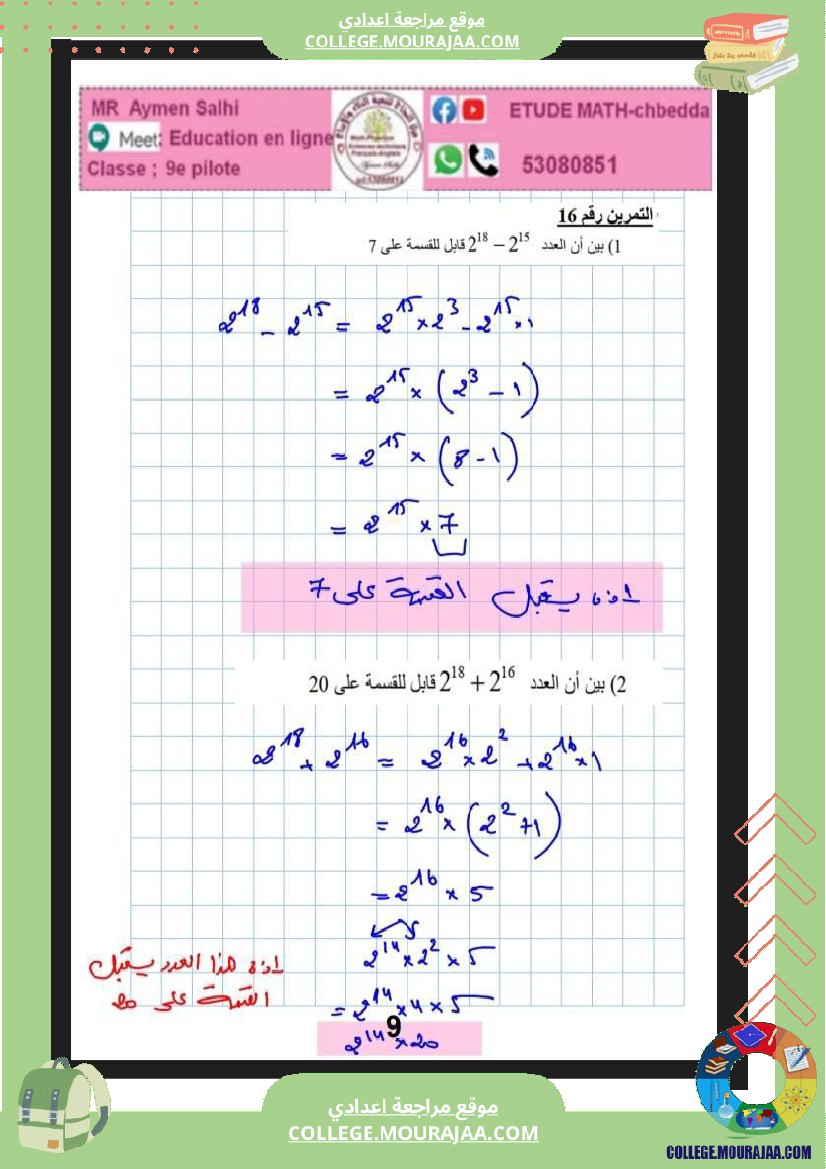 موقع مراجعة اعدادي
COLLEGE.MOURAJAA.COM
MR Aymen Salhi
Meet: Education en ligne
Classe ; 9e pilote
ETUDE MATH-chbedda
53080851
التمرين رقم 16
1) بين أن العدد 2¹⁸ − 2¹⁵ قابل للقسمة على 7
2¹⁸ − 2¹⁵ = 2¹⁵ × 2³ − 2¹⁵ × 1
= 2¹⁵ × (2³ − 1)
= 2¹⁵ × (8 − 1)
= 2¹⁵ × 7
اذن يقبل القسمة على 7
2) بين أن العدد 2¹⁸ + 2¹⁶ قابل للقسمة على 20
2¹⁸ + 2¹⁶ = 2¹⁶ × 2² + 2¹⁶ × 1
= 2¹⁶ × (2² + 1)
= 2¹⁶ × 5
2¹⁴ × 2² × 5
= 2¹⁴ × 4 × 5
2¹⁴ × 20
اذن هذا العدد يقبل
القسمة على 20
9
موقع مراجعة اعدادي
COLLEGE.MOURAJAA.COM
COLLEGE.MOURAJAA.COM